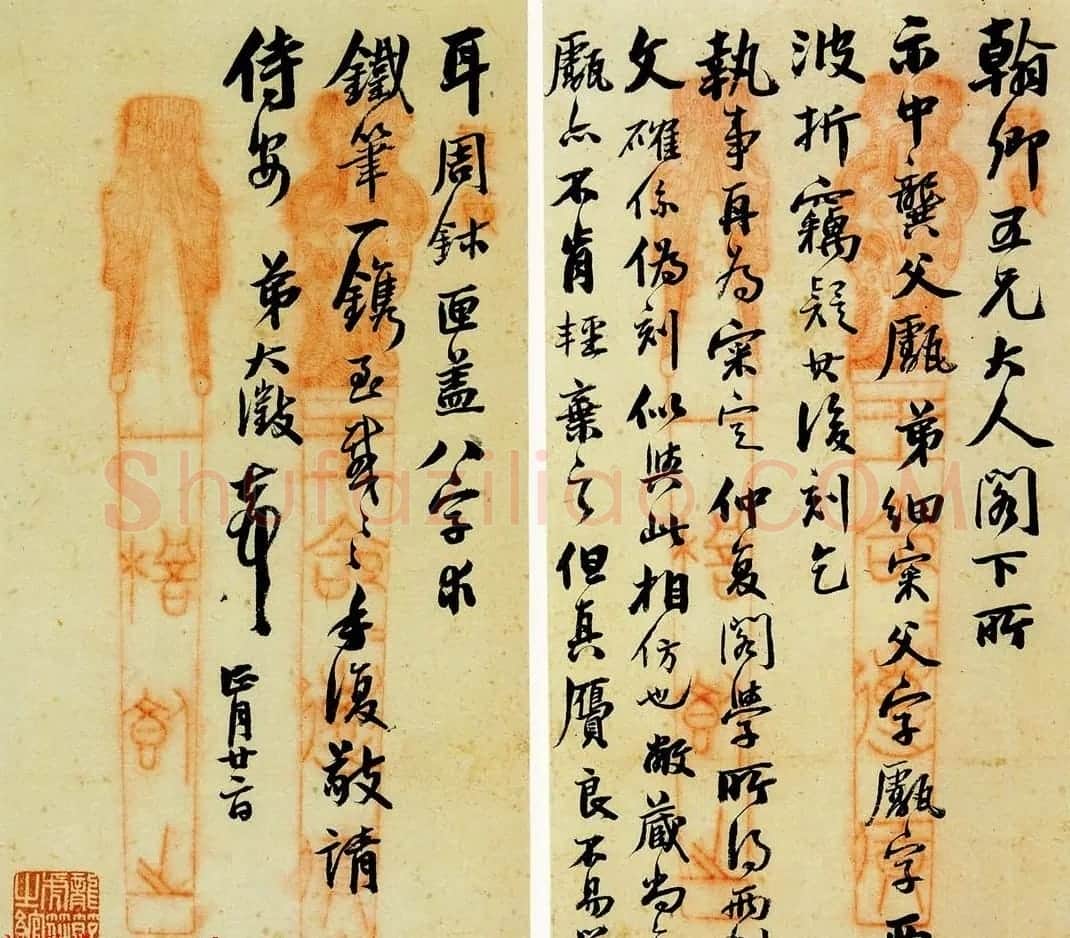 翰卿五兄大人閣下所
示中龔父甗弟細案父字甗字
波折竊疑其後刻乞
執事再為案定仲复閣學所得
文確係偽刻似與此相仿也敝蔵尚
甗亦不肯輕棄之但真贗良不易
耳周鉥匣盖八字求
鐵筆一鐫至感〻手復敬請
侍安　弟大澂頓首
正月廿二日
Shufaziliao.COM